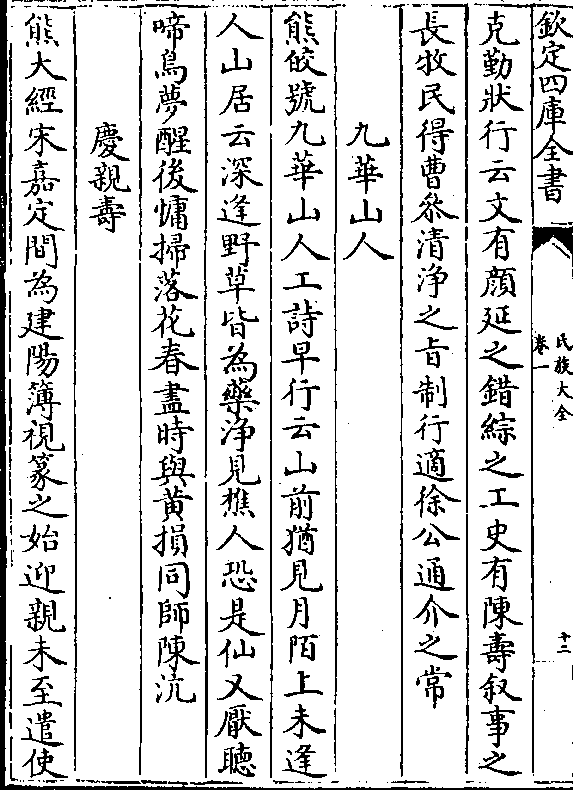 欽定四庫全書
氏族大全
卷一
十二
克勤狀行云文有顔延之錯綜之工史有陳壽叙事之
長牧民得曹叅清浄之旨制行適徐公通介之常
九華山人
熊皎號九華山人工詩早行云山前猶見月陌上未逢
人山居云深逢野草皆為藥浄見樵人恐是仙又厭聴
啼鳥夢醒後慵掃落花春盡時與黄損同師陳沆
慶親壽
熊大經宋嘉定間為建陽簿視篆之始迎親未至遣使